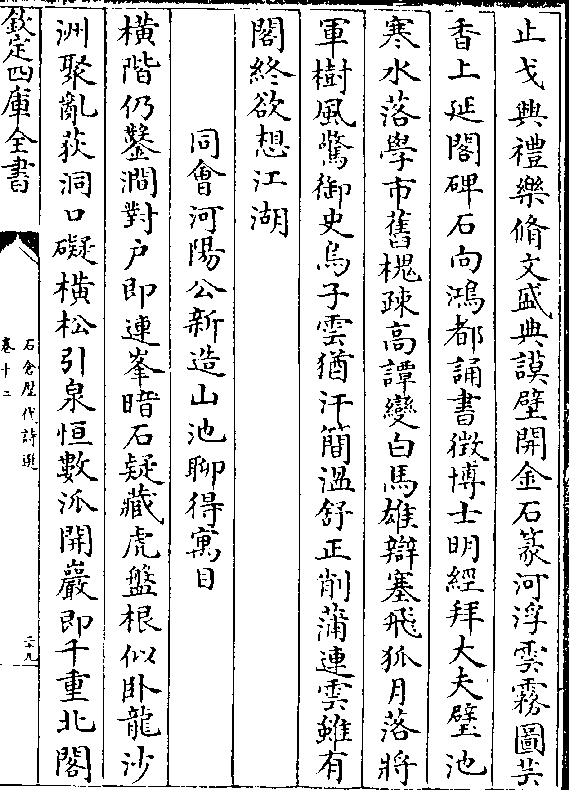 止戈興禮樂脩文盛典謨壁開金石篆河浮雲霧圖芸
香上延閣碑石向鴻都誦書徴博士明經拜大夫璧池
寒水落學市舊槐疎高譚變白馬雄辯塞飛狐月落將
軍樹風驚御史烏子雲猶汗簡溫舒正削蒲連雲雖有
閣終欲想江湖
同會河陽公新造山池聊得寓目
橫階仍鑿澗對户即連峯暗石疑藏虎盤根似卧龍沙
洲聚亂荻洞口礙橫松引泉恒數派開巖即千重北閣
欽定四庫全書
石倉歷代詩選
卷十二
二十九